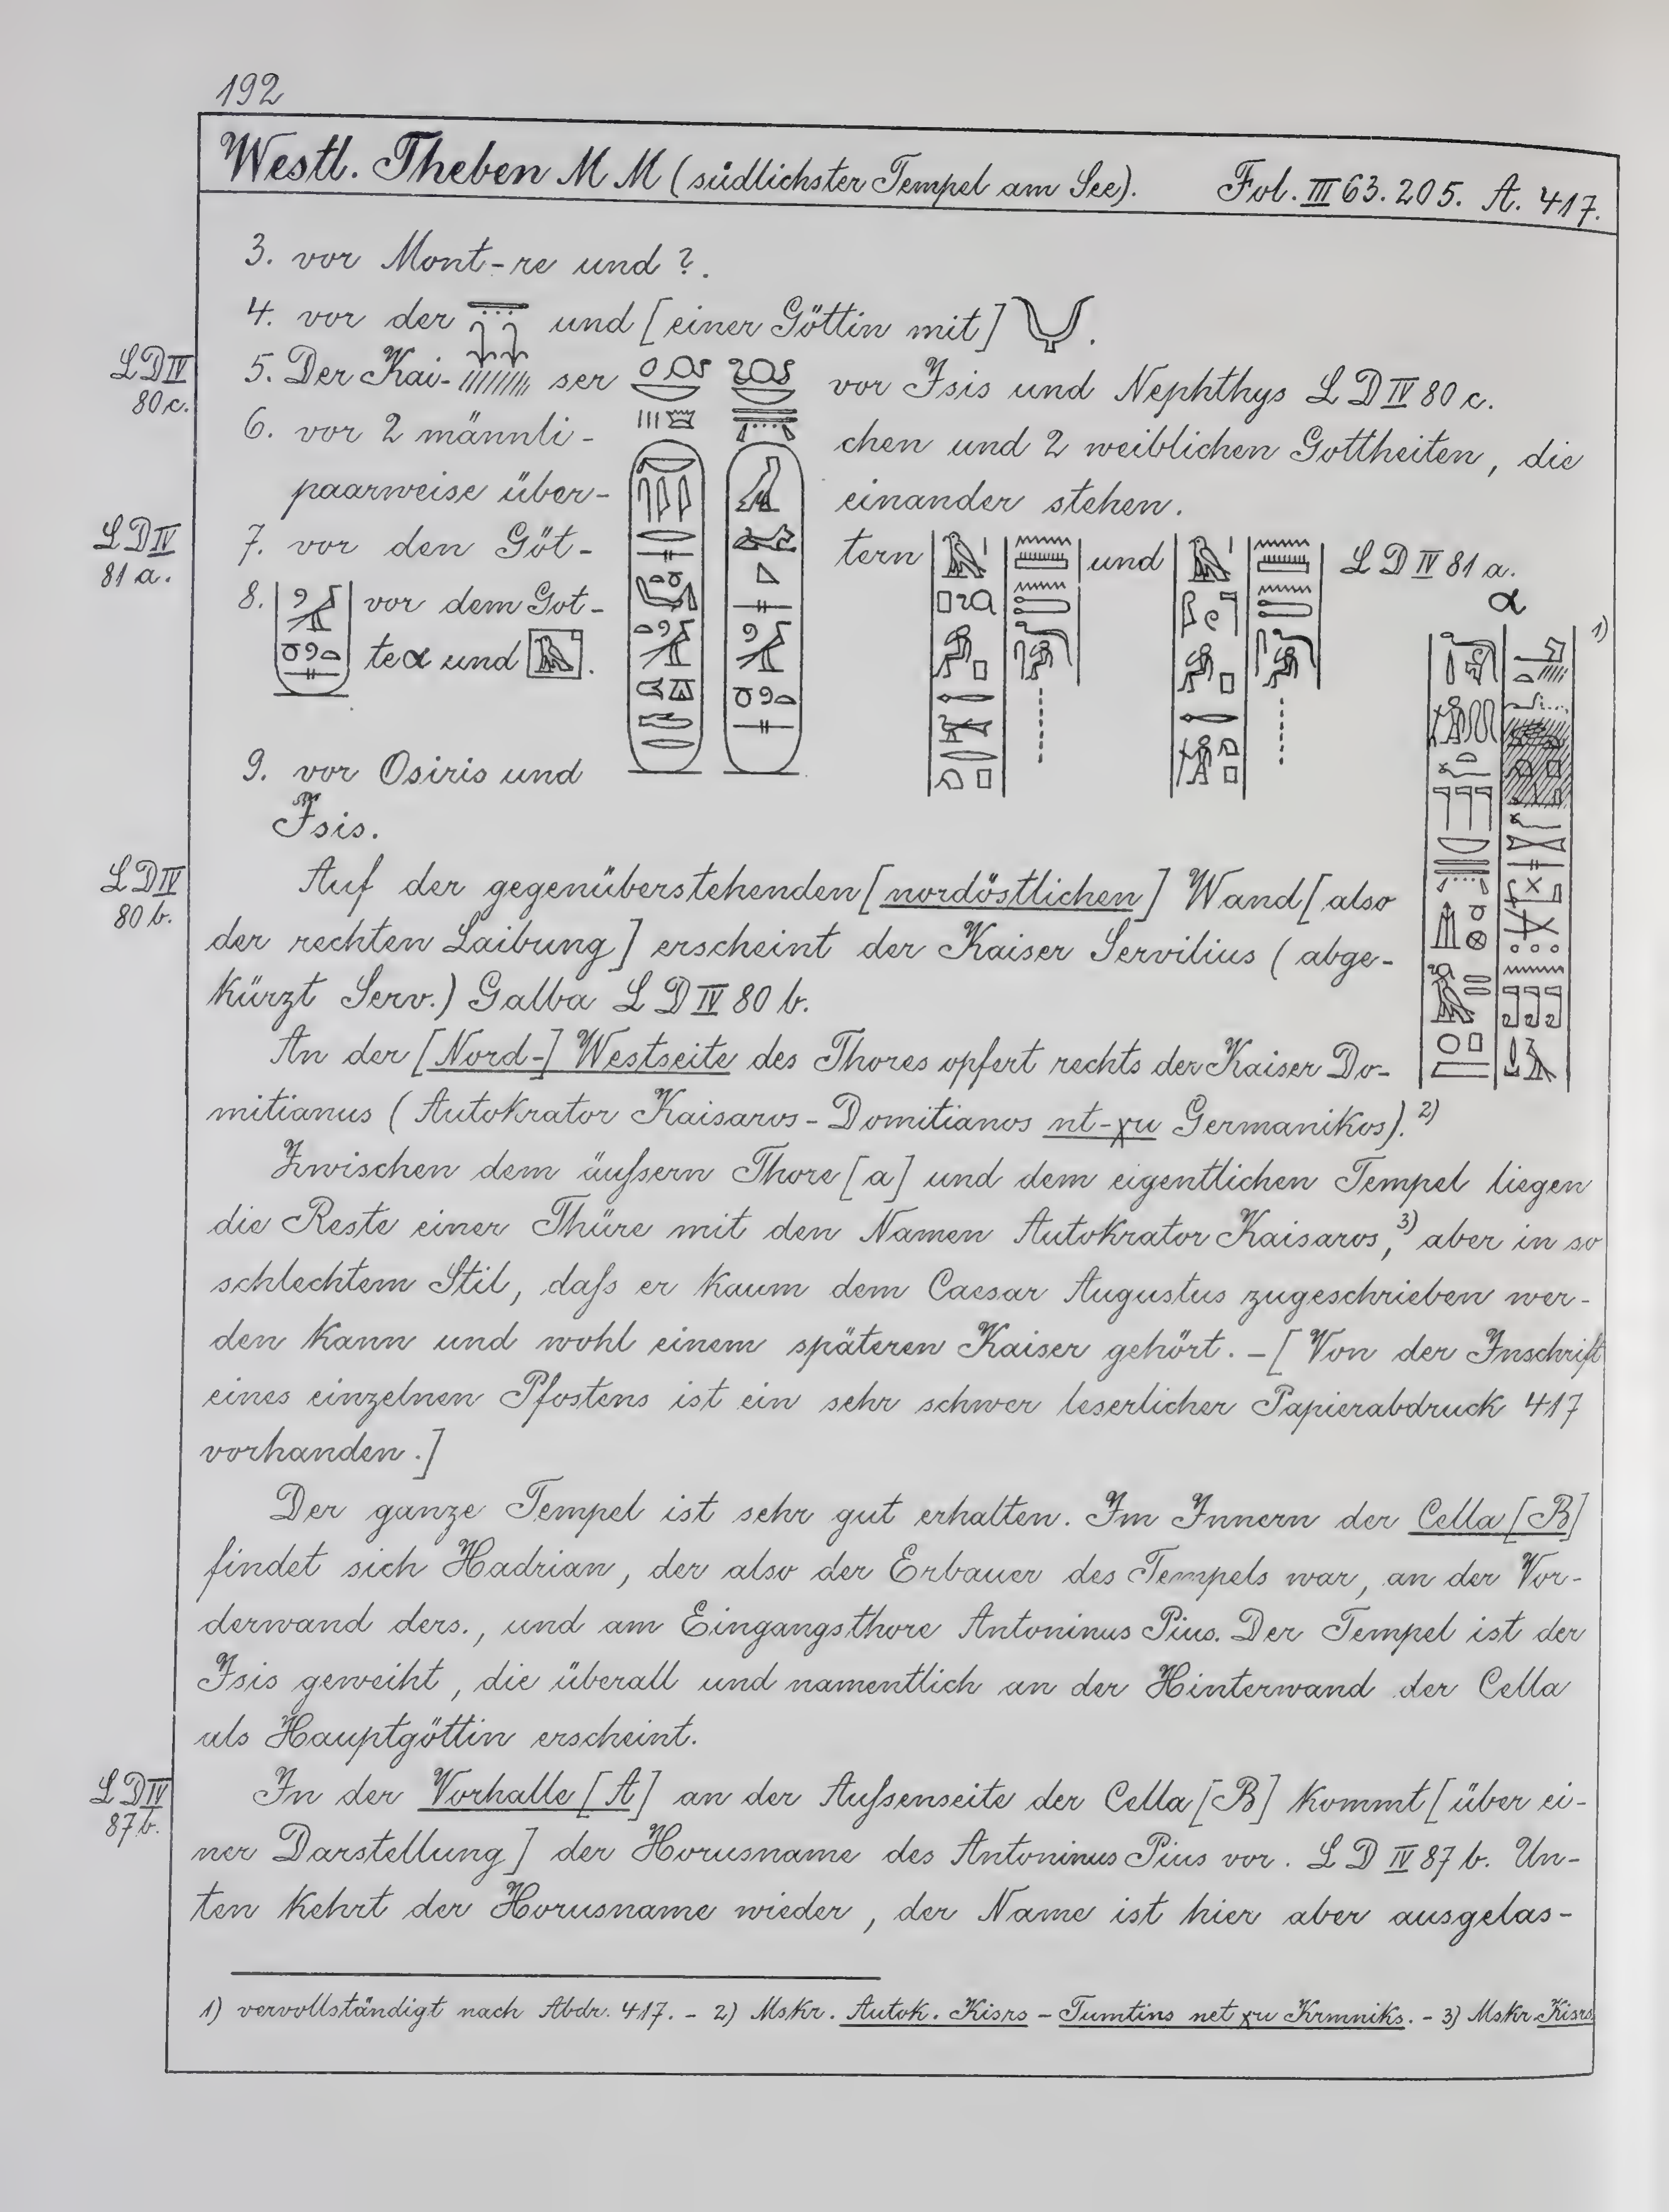 192
Westl. Theben M M (südlichster Tempel am See). Fol. III 63. 205. A. 417.
3. vor Mont-re und ?.
4. vor der und [einer Göttin mit] .
LD IV 80 c.
5. Der Kai- ser vor Isis und Nephthys LD IV 80 c.
6. vor 2 männli- chen und 2 weiblichen Gottheiten, die
paarweise über- einander stehen.
LD IV 81 a.
7. vor den Göt- tern und LD IV 81 a.
α
8. vor dem Got-
te α und . 1)
9. vor Osiris und
Isis.
LD IV 80 b.
Auf der gegenüberstehenden [nordöstlichen] Wand [also
der rechten Laibung] erscheint der Kaiser Servilius (abge-
kürzt Serv.) Galba LD IV 80 b.
An der [Nord-] Westseite des Thores opfert rechts der Kaiser Do-
mitianus (Autokrator Kaisaros-Domitianos nt-χu Germanikos). 2)
Zwischen dem äußern Thore [a] und dem eigentlichen Tempel liegen
die Reste einer Thüre mit den Namen Autokrator Kaisaros, 3) aber in so
schlechtem Stil, daß er kaum dem Caesar Augustus zugeschrieben wer-
den kann und wohl einem späteren Kaiser gehört. – [Von der Inschrift
eines einzelnen Pfostens ist ein sehr schwer leserlicher Papierabdruck 417
vorhanden.]
Der ganze Tempel ist sehr gut erhalten. Im Innern der Cella [B]
findet sich Hadrian, der also der Erbauer des Tempels war, an der Vor-
derwand ders., und am Eingangsthore Antoninus Pius. Der Tempel ist der
Isis geweiht, die überall und namentlich an der Hinterwand der Cella
als Hauptgöttin erscheint.
LD IV 87 b.
In der Vorhalle [A] an der Außenseite der Cella [B] kommt [über ei-
ner Darstellung] der Horusname des Antoninus Pius vor. LD IV 87 b. Un-
ten kehrt der Horusname wieder, der Name ist hier aber ausgelas-
1) vervollständigt nach Abdr. 417. – 2) Mskr. Autok. Kisrs – Tumtins net χu Krmniks. – 3) Mskr Kisrs